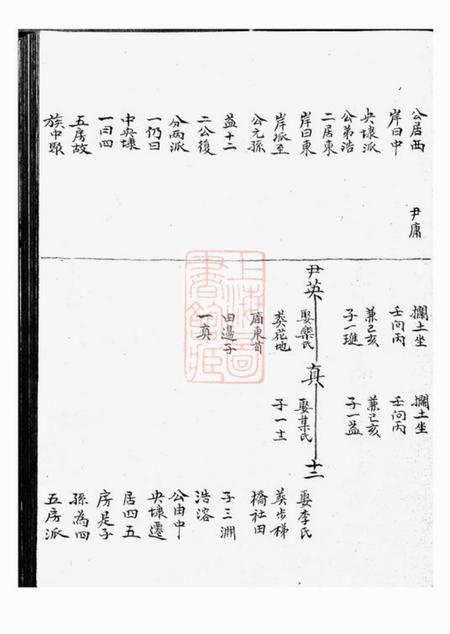 公居西
岸曰中
央埭派
公弟浩
二居東
岸曰東
岸派至
公元孫
益十二
二公復
分兩派
一仍曰
中央埭
一曰四
五房故
族中聚
尹庸
欄土坐
壬向丙
兼己亥
子一璡
欄土坐
壬向丙
兼己亥
子一益
尹英
娶樂氏
葬花地
廟東首
田邊子
一真
真
娶某氏
子一士
十二
娶李氏
葬步梯
橋社田
子三淵
浩溶
公由中
央埭遷
居四五
房是子
孫為四
五房派
上海圖
書館藏